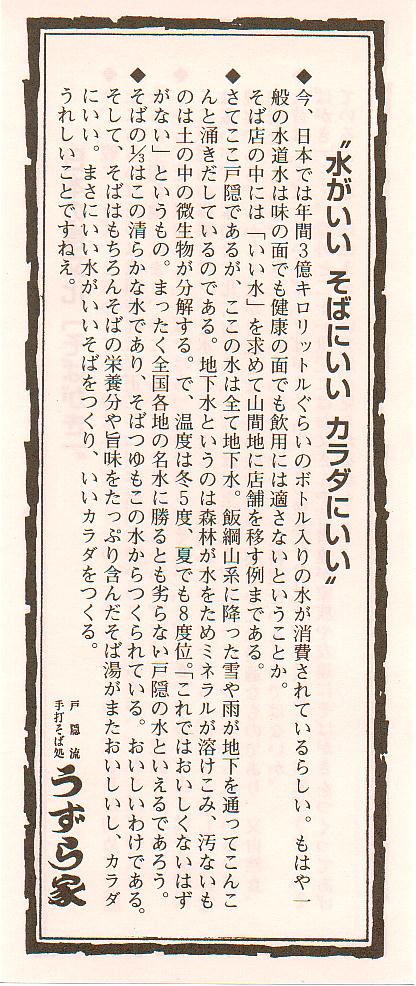 〝水がいい そばにいい カラダにいい〟
◆今、日本では年間3億キロリットルぐらいのボトル入りの水が消費されているらしい。もはや一
般の水道水は味の面でも健康の面でも飲用には適さないということか。
そば店の中には「いい水」を求めて山間地に店舗を移す例まである。
◆さてここ戸隠であるが、ここの水は全て地下水。飯綱山系に降った雪や雨が地下を通ってこんこ
んと涌きだしているのである。地下水というのは森林が水をためミネラルが溶けこみ、汚ないも
のは土の中の微生物が分解する。で、温度は冬5度、夏でも8度位。「これではおいしくないはず
がない」というもの。まったく全国各地の名水に勝るとも劣らない戸隠の水といえるであろう。
◆そばの⅓はこの清らかな水でありそばつゆもこの水からつくられている。おいしいわけである。
そして、そばはもちろんそばの栄養分や旨味をたっぷり含んだそば湯がまたおいしいし、カラダ
にいい。まさにいい水がいいそばをつくり、いいカラダをつくる。
うれしいことですねえ。
戸隠流
手打そば処
うずら家